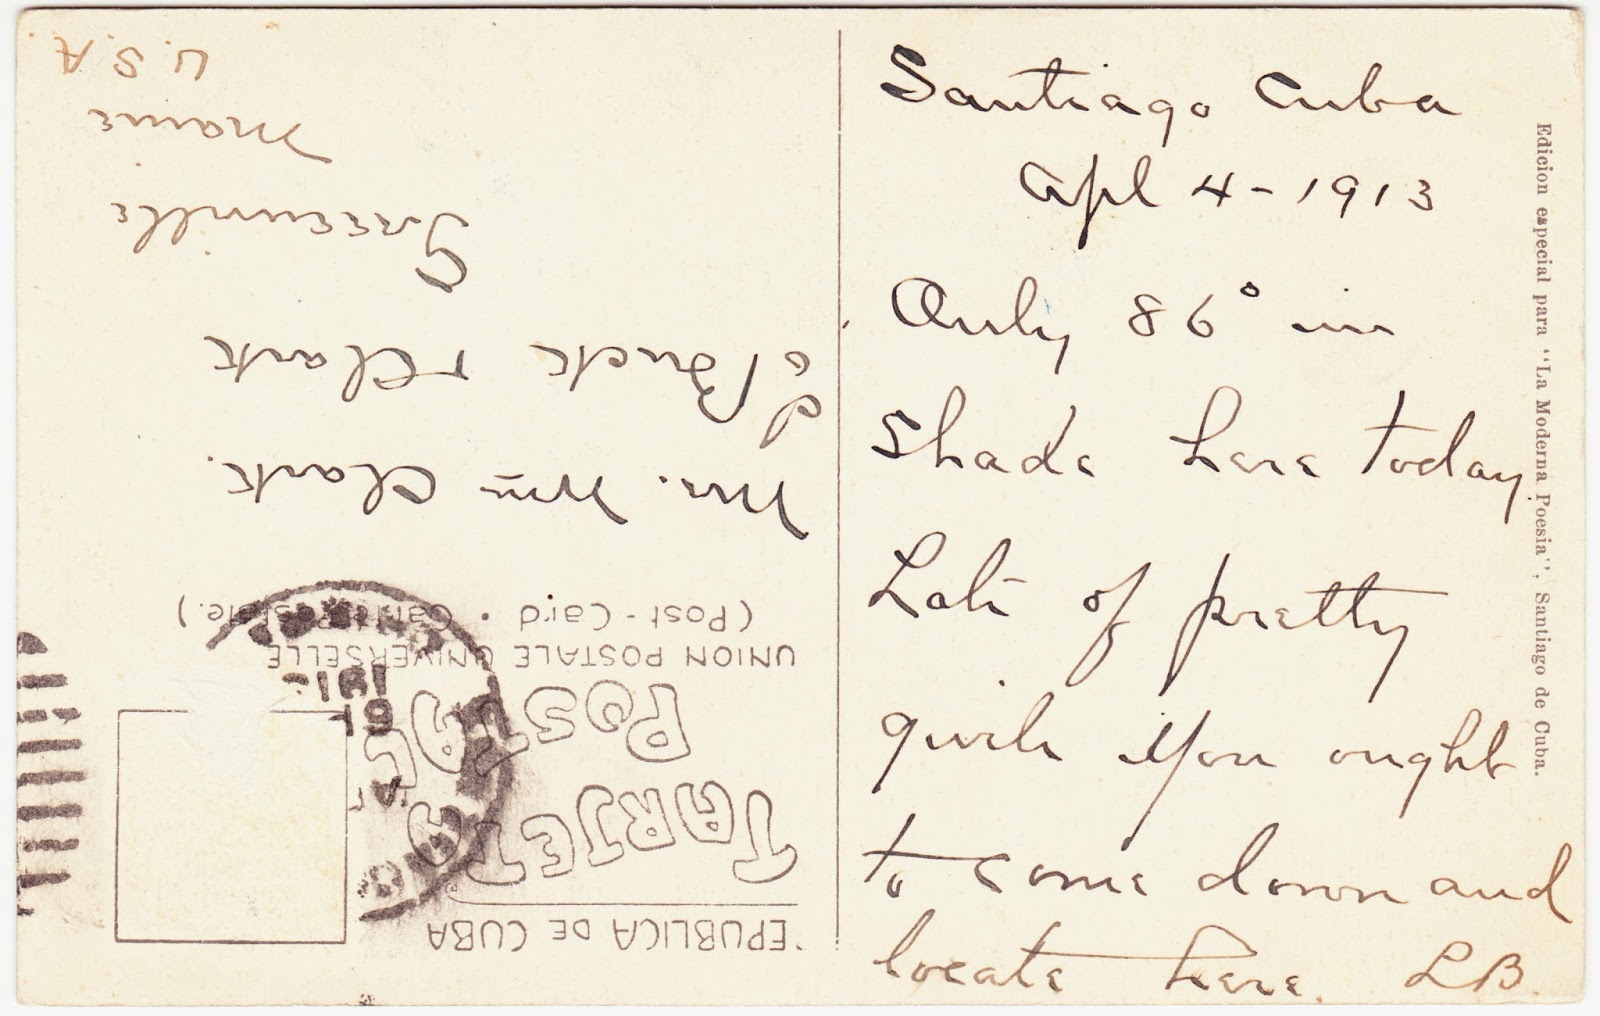 Santiago Cuba
Apl 4-1913
Only 86° in
Shade here today
Lots of pretty
girls you ought
to come down and
locate here. LB.
Edicion especial para "La Moderna Poesia", Santiago de Cuba.
REPUBLICA DE CUBA
TARJETA
POSTAL
UNION POSTALE UNIVERSELLE
(Post-Card • Carte Postale.)
Mr. Wm Clark.
Buck & Clark
Greenville
Maine
U.S.A